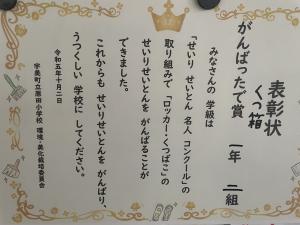 表彰状
くつ箱
がんばったで賞 一年 二組
みなさんの 学級は
「せいり せいとん 名人 コンクール」の
取り組みで「ロッカー・くつばこ」の
せいりせいとんを がんばることが
できました。
これからも せいりせいとんを がんばり、
うつくしい 学校に してください。
令和五年十月二日
宇美町立原田小学校 環境・美化栽培委員会